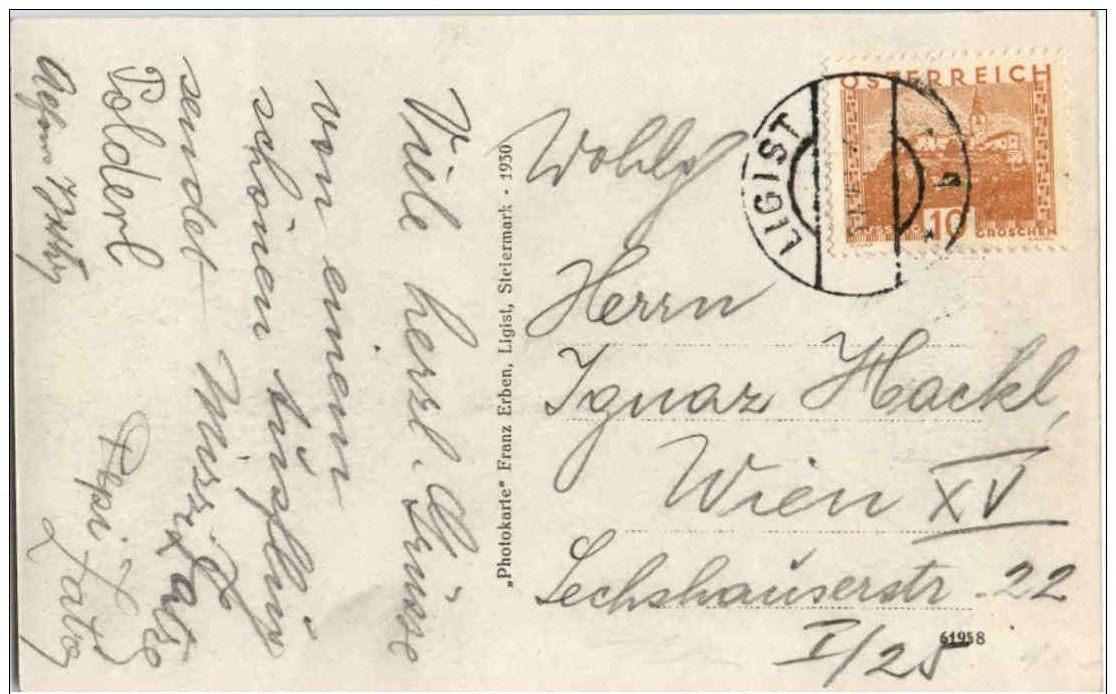 Viele herzl. Grüsse
von einem
schönen Ausflug
sendet
Polderl
Pepi
„Photokarte“ Franz Erben, Ligist, Steiermark - 1930
ÖSTERREICH
10
GROSCHEN
LIGIST
b
Herrn
Ignaz Hackl,
Wien XV
Sechshauserstr. 22
I/25
61958